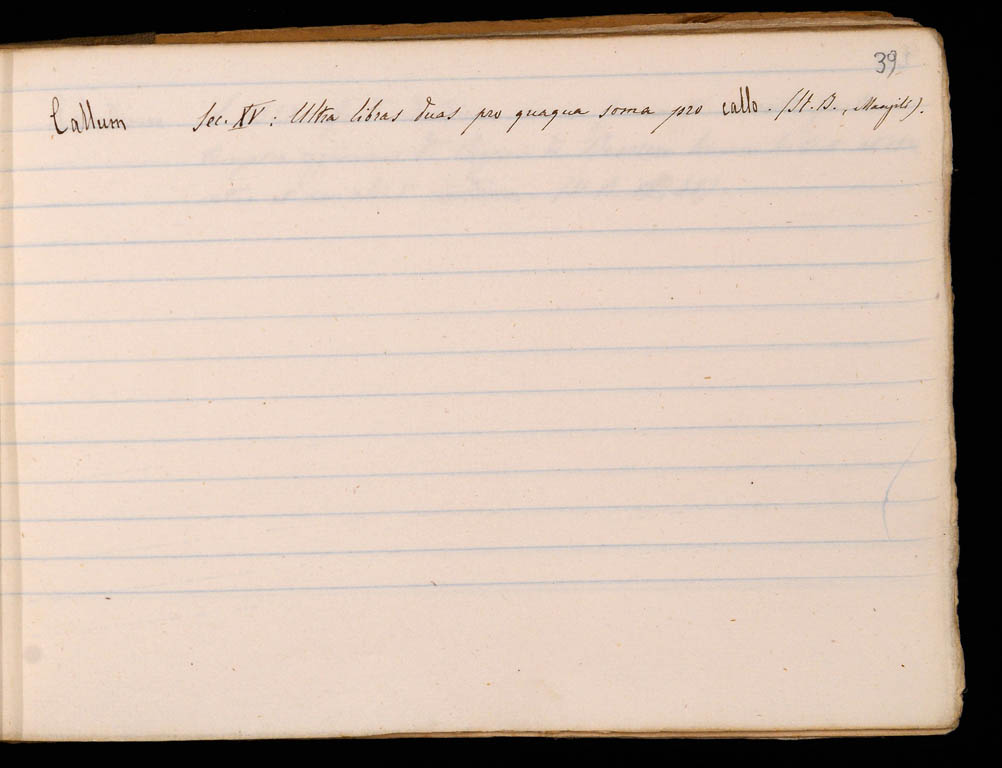 39
Callum Sec. XV : Ultra libras duas pro quaqua soma pro callo. (St. B.,